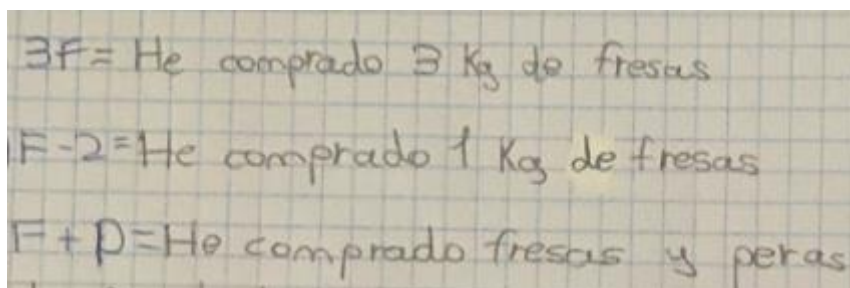 3F = He comprado 3 Kg de fresas
F - 2 = He comprado 1 Kg de fresas
F + P = He comprado fresas y peras